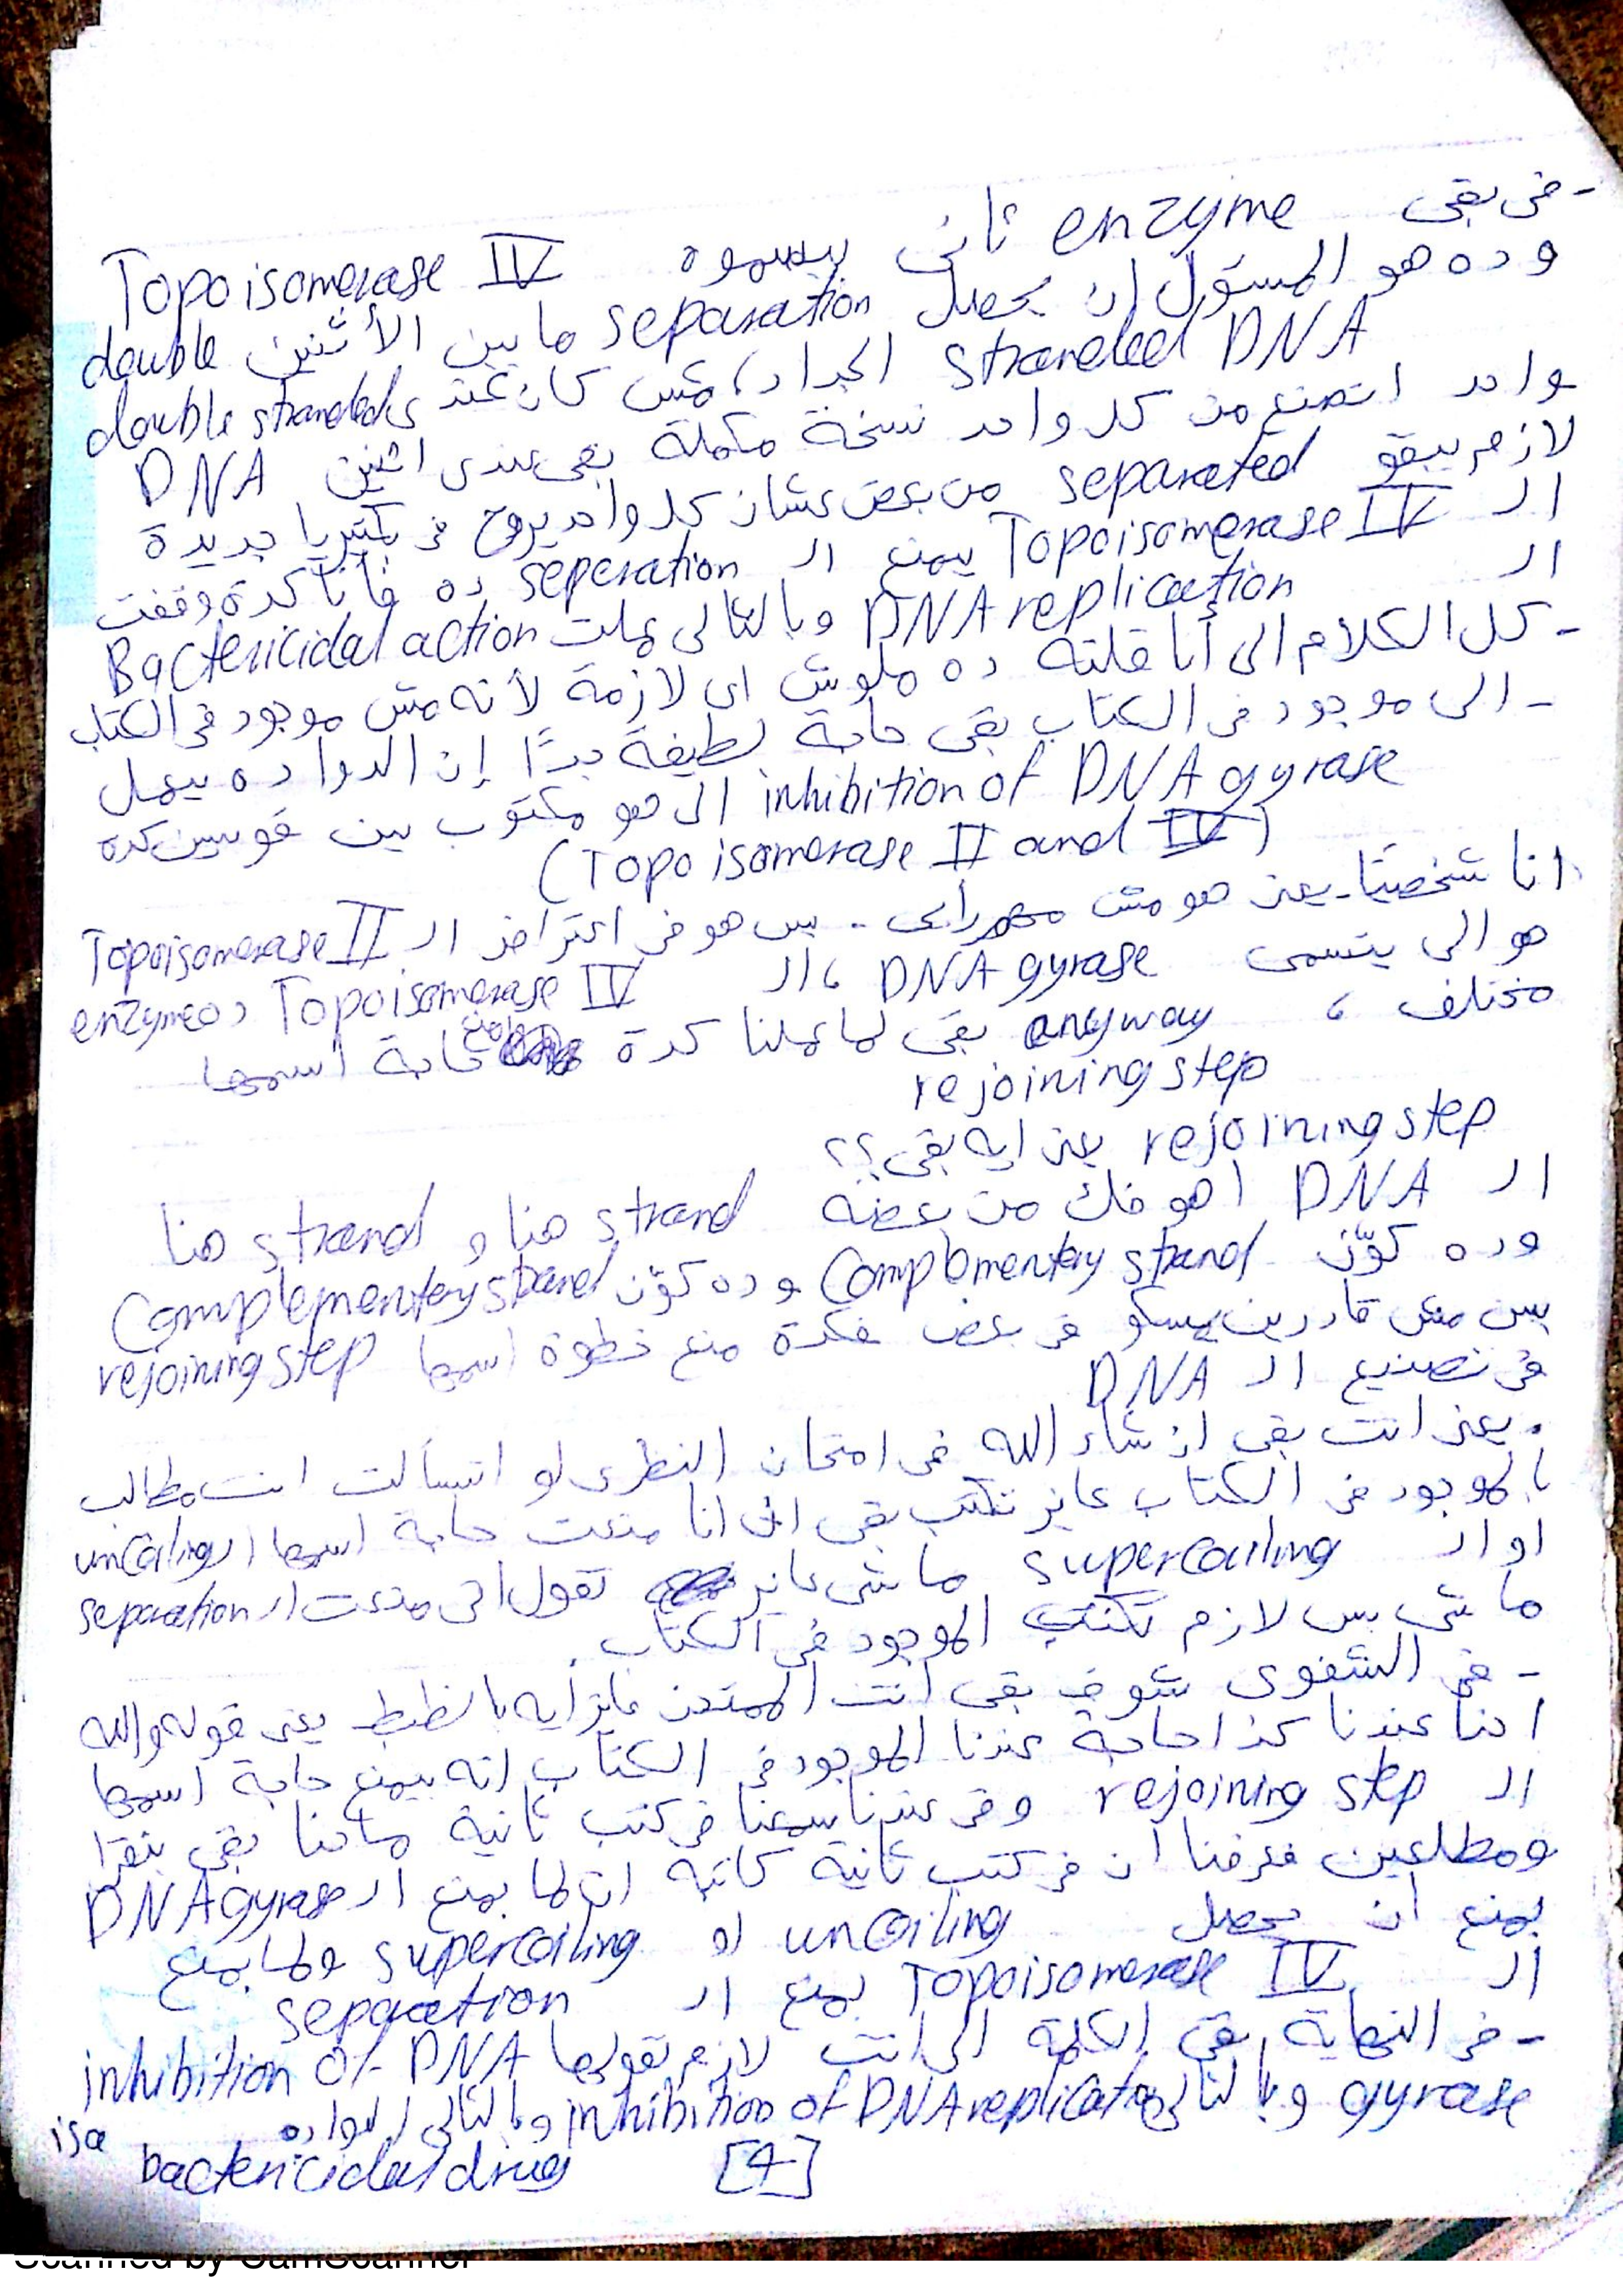 - فى بقى enzyme تانى بيسموه Topoisomerase IV
وده هو المسئول ان يحصل separation ما بين الأثنين double
stranded DNA الجداد، مش كان عندى double stranded
واحد اتصنع من كل واحد نسخة مكملة بقى عندى اتنين DNA
لازم يبقو separated من بعض عشان كل واحد يروح فى بكتيريا جديدة
الـ Topoisomerase IV يمنع الـ seperation ده فأنا كدة وقفت
الـ DNA replication وبالتالى عملت Bactericidal action
- كل الكلام الى أنا قلته ده ملوش اى لازمة لأنه مش موجود فى الكتاب
- الى موجود فى الكتاب بقى حاجة لطيفة جدًا إن الدوا ده بيعمل
inhibition of DNA gyrase الى هو مكتوب بين قوسين كدة
(Topoisomerase II and IV)
انا شخصيًا - يعنى هو مش مهم رأيى - بس هو فى اعتراض الـ Topoisomerase II
هو الى يتسمى DNA gyrase، الـ Topoisomerase IV ده enzyme
مختلف، anyway بقى لما عملنا كدة منع حاجة اسمها
rejoining step
rejoining step يعنى ايه بقى؟؟
الـ DNA اهو فك من بعضه strand هنا و strand هنا
وده كوّن Complementary strand وده كوّن Complementary strand
بس مش قادرين يمسكو فى بعض فكدة منع خطوة اسمها rejoining step
فى تصنيع الـ DNA
. يعنى انت بقى ان شاء الله فى امتحان النظرى لو اتسألت انت مطالب
بالموجود فى الكتاب عايز تكتب بقى انى انا منعت حاجة اسمها الـ uncoiling
او الـ supercoiling ماشى عايز تقول انى منعت الـ separation
ماشى بس لازم تكتب الموجود فى الكتاب.
- فى الشفوى شوف بقى انت الممتحن عايز ايه بالظبط يعنى قوله والله
احنا عندنا كذا حاجة عندنا الموجود فى الكتاب انه بيمنع حاجة اسمها
الـ rejoining step وفى عندنا سمعنا فى كتب تانية ماحنا بقى بنقرا
ومطلعين فعرفنا ان فى كتب تانية كاتبه ان لما يمنع الـ DNA gyrase
يمنع ان يحصل uncoiling او supercoiling ولما يمنع
الـ Topoisomerase IV يمنع الـ separation
- فى النهاية بقى الكلمة الى انت لازم تقولها inhibition of DNA
gyrase وبالتالى inhibition of DNA replication وبالتالى الدوا ده
bactericidal drug isa
[4]
Scanned by CamScanner